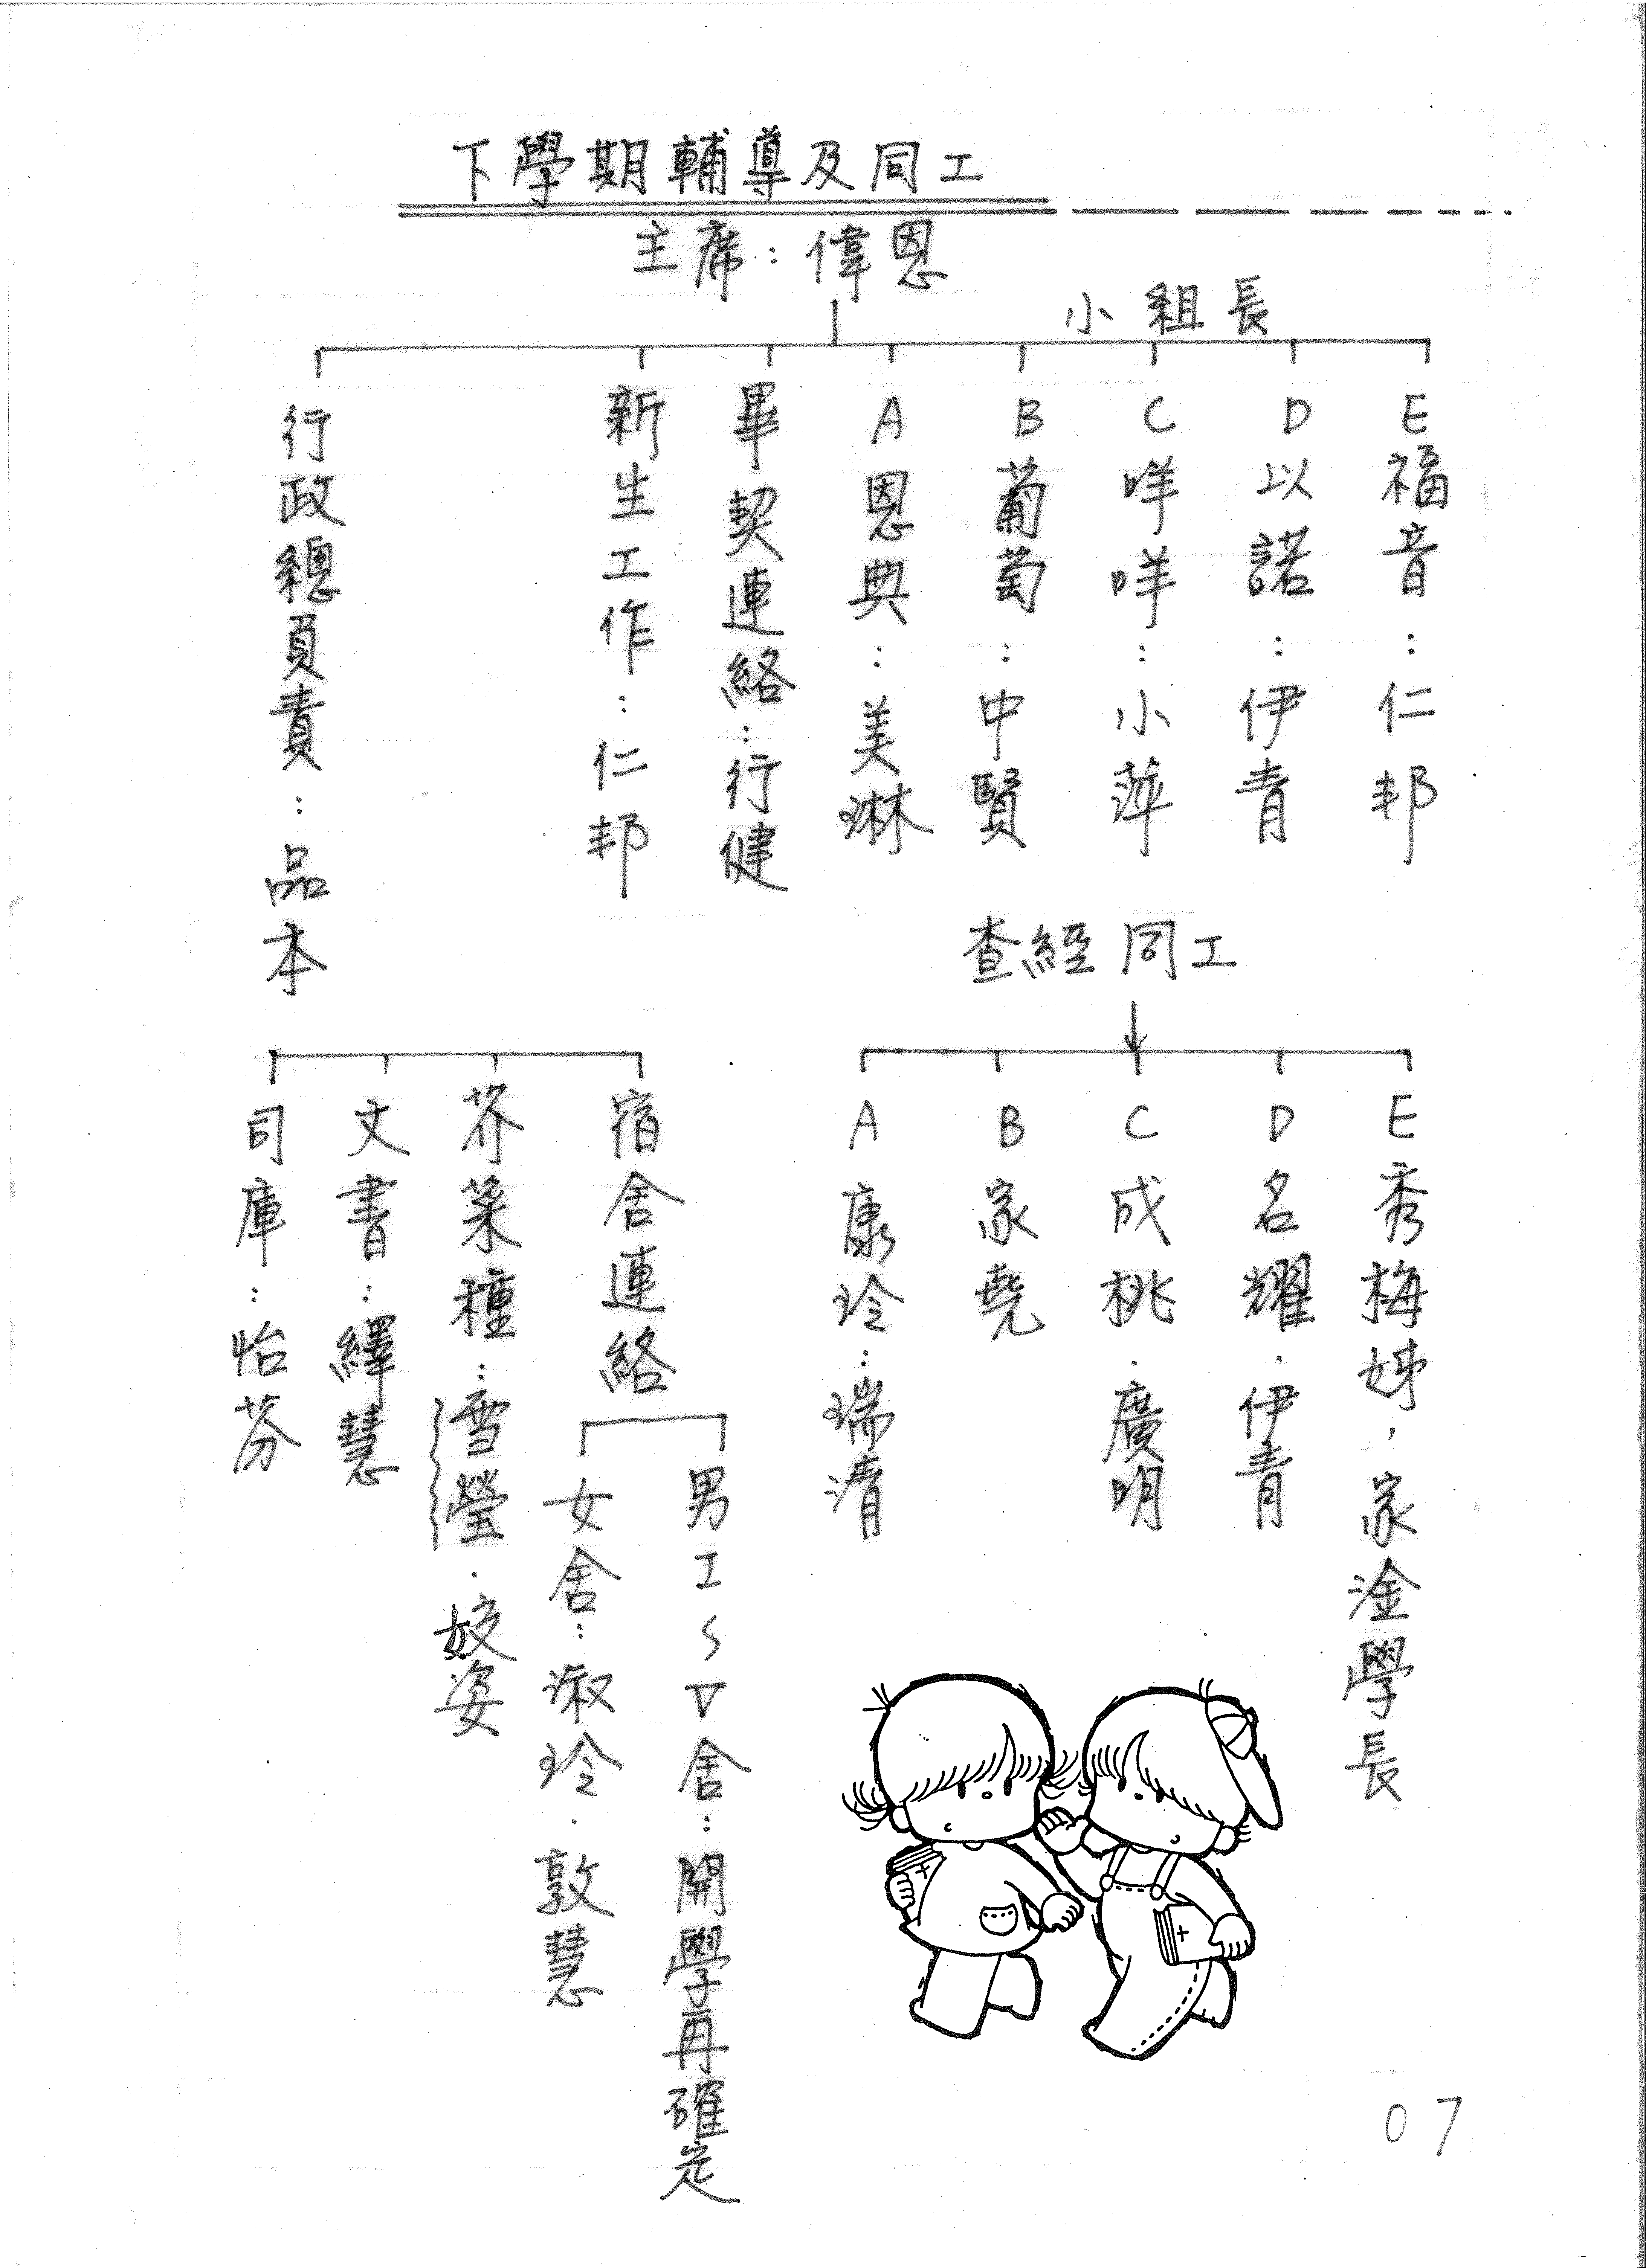 下學期輔導及同工
主席：偉恩
小組長
E福音：仁邦
D以諾：伊青
C咩咩：小萍
B葡萄：中賢
A恩典：美琳
畢契連絡：行健
新生工作：仁邦
行政總負責：品本
查經同工
E秀梅姊，家淦學長
D名耀．伊青
C成桃．廣明
B家堯
A康玲：瑞清
宿舍連絡
男ⅠⅤ舍：開學再確定
女舍：淑玲．敦慧
芥菜種：雪瑩．姣姿
文書：繹慧
司庫：怡芬
07